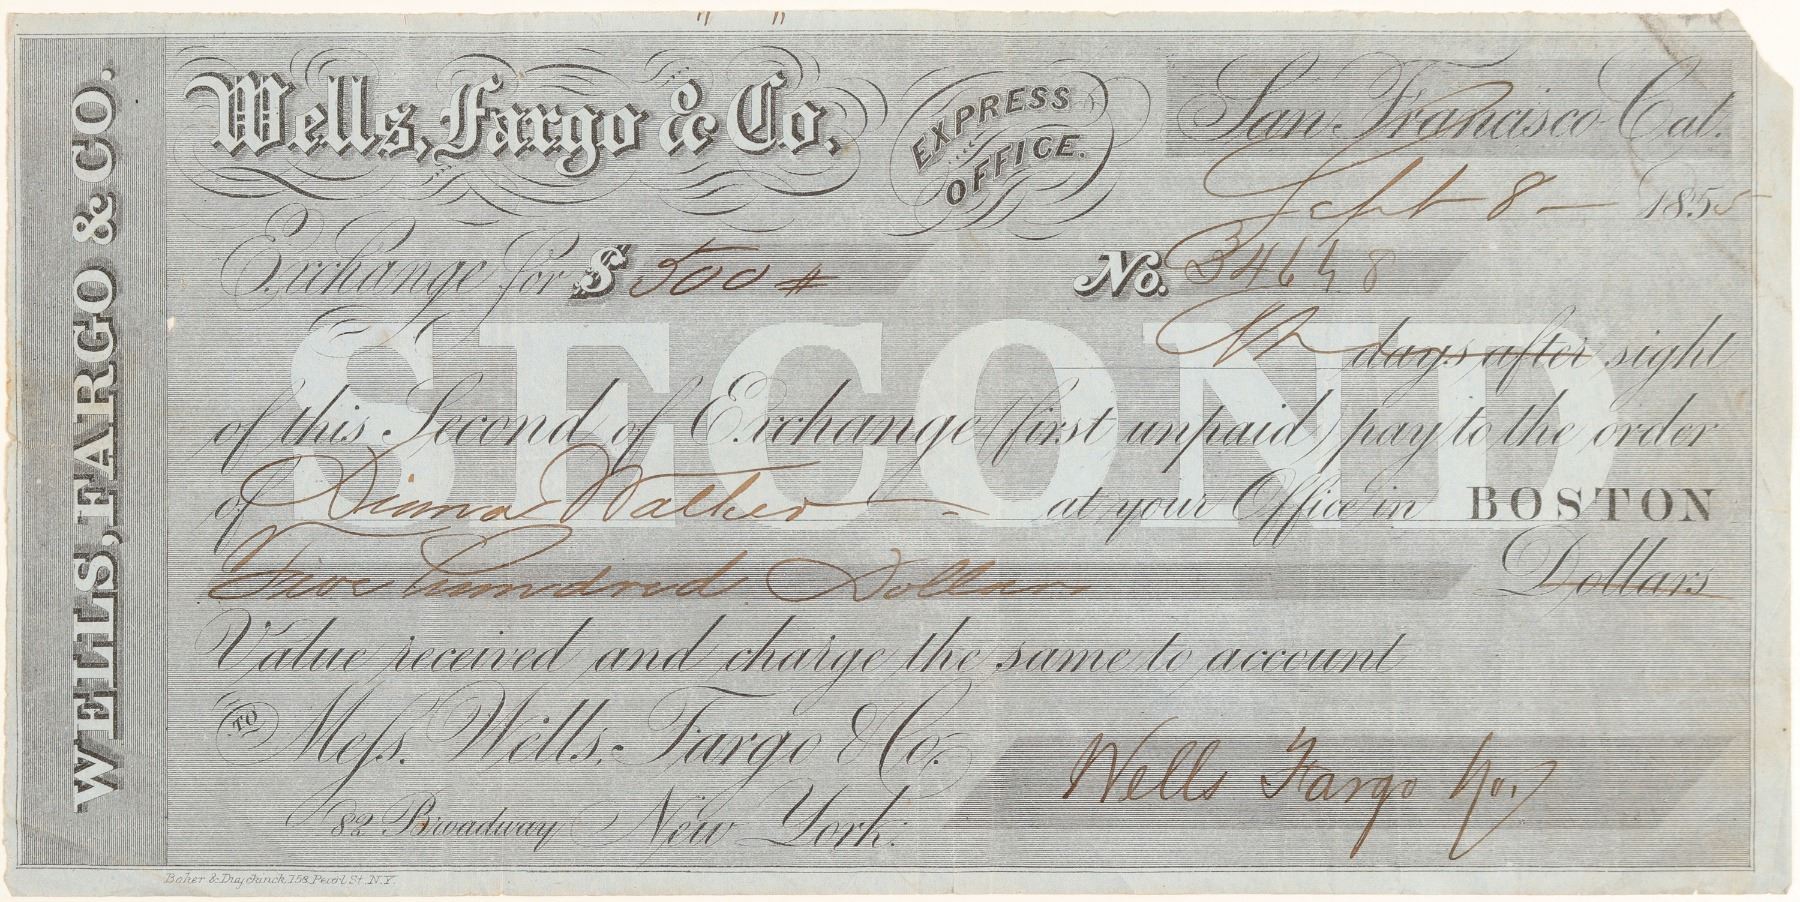 WELLS, FARGO & CO.
Wells, Fargo & Co.
EXPRESS OFFICE.
San Francisco Cal.
Sept 8 - 1855
Exchange for $ 500 #
No.
days after sight
of this Second of Exchange (first unpaid) pay to the order
of Diana Walker - at your Office in BOSTON
Five hundred Dollars Dollars
SECOND
Value received and charge the same to account
TO Mess. Wells, Fargo & Co.
82 Broadway New York.
Wells Fargo & Co.
158 Pearl St. N.Y.